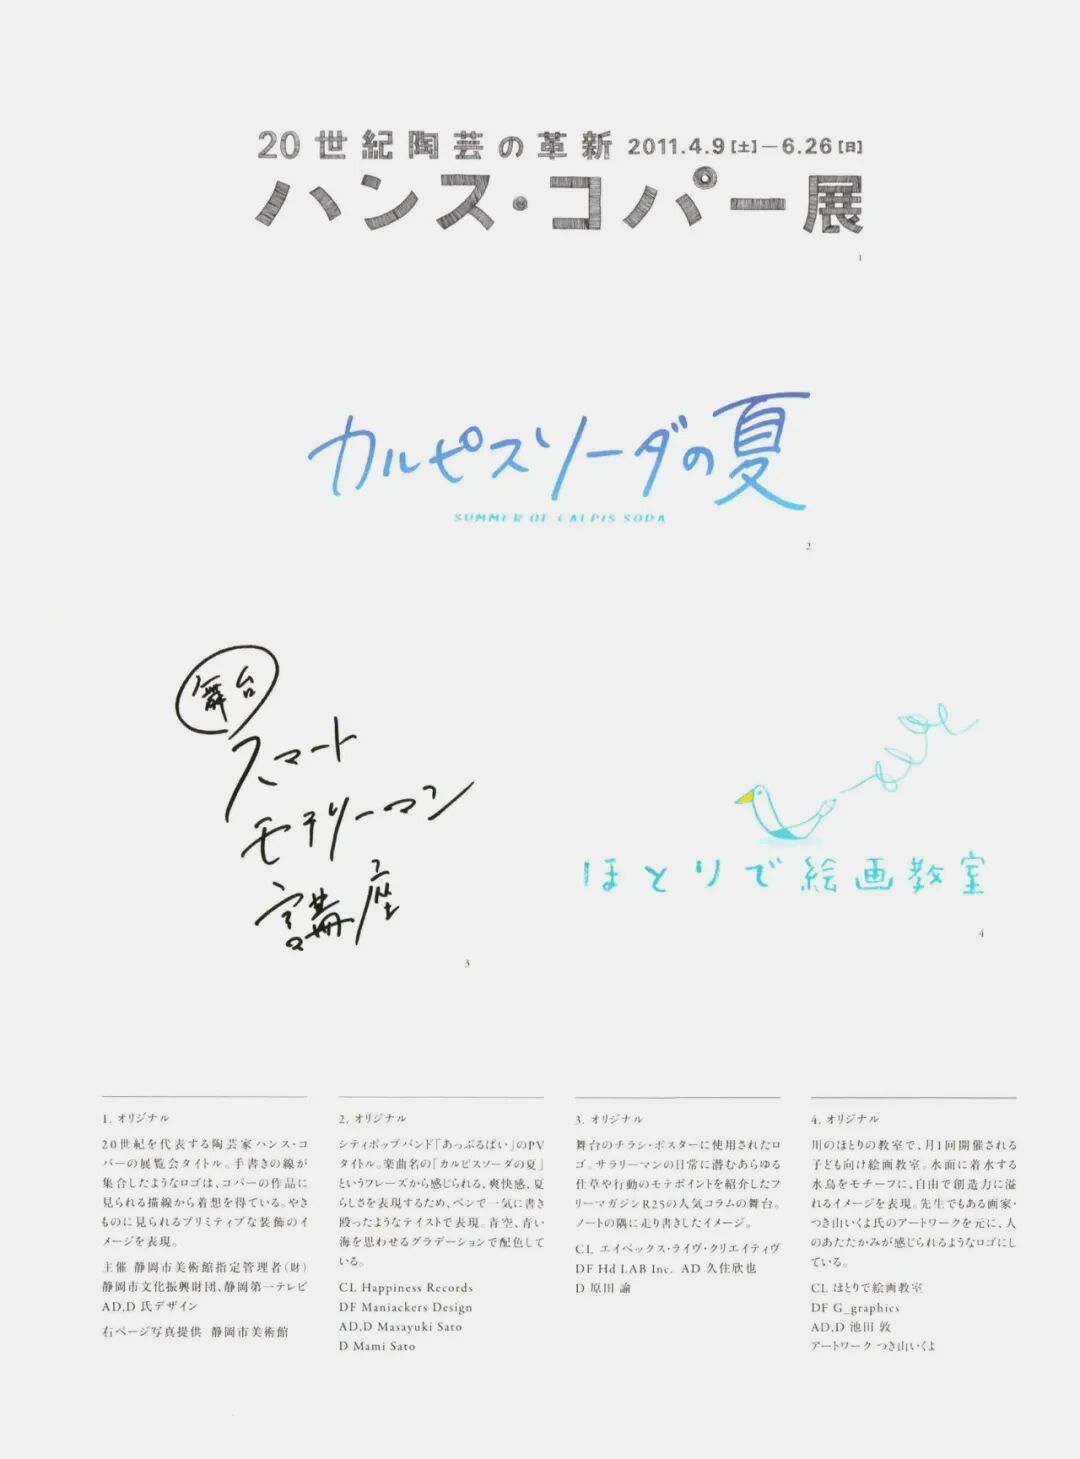 20世紀陶芸の革新 2011.4.9[土]—6.26[日]
ハンス・コパー展
1
カルピスソーダの夏
SUMMER OF CALPIS SODA
2
舞台
スマート
モテリーマン
講座
3
ほとりで絵画教室
4
1. オリジナル
20世紀を代表する陶芸家ハンス・コ
パーの展覧会タイトル。手書きの線が
集合したようなロゴは、コパーの作品に
見られる描線から着想を得ている。やき
ものに見られるプリミティブな装飾のイ
メージを表現。
主催 静岡市美術館指定管理者(財)
静岡市文化振興財団、静岡第一テレビ
AD,D 氏デザイン
右ページ写真提供 静岡市美術館
2. オリジナル
シティポップバンド「あっぷるぱい」のPV
タイトル。楽曲名の「カルピスソーダの夏」
というフレーズから感じられる、爽快感、夏
らしさを表現するため、ペンで一気に書き
殴ったようなテイストで表現。青空、青い
海を思わせるグラデーションで配色して
いる。
CL Happiness Records
DF Maniackers Design
AD,D Masayuki Sato
D Mami Sato
3. オリジナル
舞台のチラシ・ポスターに使用されたロ
ゴ。サラリーマンの日常に潜むあらゆる
仕草や行動のモテポイントを紹介したフ
リーマガジンR25の人気コラムの舞台。
ノートの隅に走り書きしたイメージ。
CL エイベックス・ライヴ・クリエイティヴ
DF Hd LAB Inc. AD 久住欣也
D 原田 諭
4. オリジナル
川のほとりの教室で、月1回開催される
子ども向け絵画教室。水面に着水する
水鳥をモチーフに、自由で創造力に溢
れるイメージを表現。先生でもある画家・
つき山いくよ氏のアートワークを元に、人
のあたたかみが感じられるようなロゴにし
ている。
CL ほとりで絵画教室
DF G_graphics
AD,D 池田 敦
アートワーク つき山いくよ